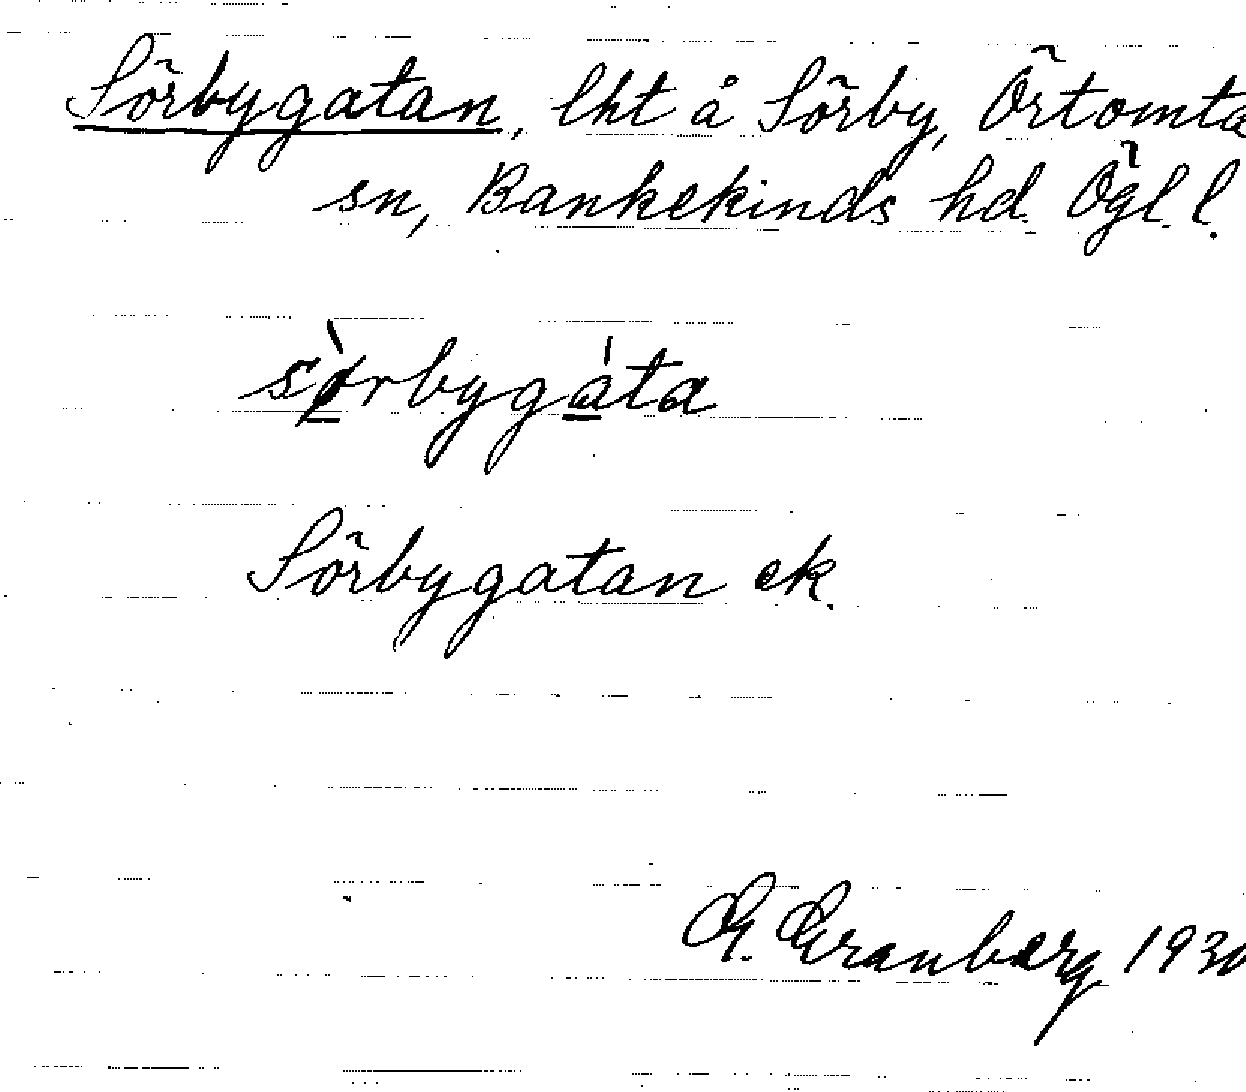 Sörbygatan, lht å Sörby, Örtomta
sn, Bankekinds hd. Ögl. l.
sø̀rbygáta
Sörbygatan ek.
G. Granberg 1930